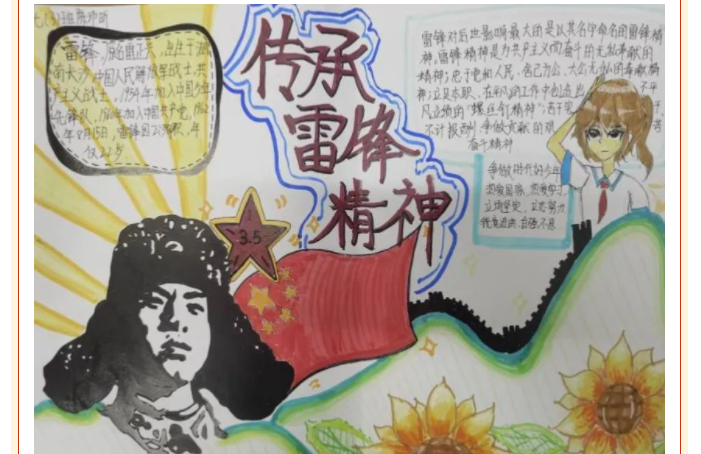 七(3)班陈
传承
雷锋
精神
3.5
雷锋,原名雷正兴,出生于湖
南长沙,中国人民解放军战士,共
产主义战士,1954年加入中国少年
先锋队,1960年加入中国共产党,1962
年8月15日,雷锋因公殉职,年
仅22岁
雷锋对后世影响最大的是以其名字命名的雷锋精
神,雷锋精神是为共产主义而奋斗的无私奉献的
精神;忠于党和人民、舍己为公、大公无私的奉献精
神;立足本职、在平凡的工作中创造出 不平
凡业绩的"螺丝钉精神";苦干实 干、
不计报酬、争做贡献的艰 苦
奋斗精神
争做时代好少年
热爱祖国,热爱学习
立场坚定,立志努力
锐意进取,自强不息